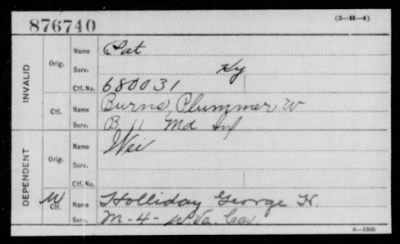 876740 (3-H-4)
INVALID
Orig.
Name Pat
Serv. Ky
Ctf. No. 680031
Ctf.
Name Burns, Plummer W
Serv. B 11 Md Inf
DEPENDENT
Orig.
Name Wei
Serv.
Ctf. No.
W Ctf.
Name Holliday George H.
Serv. M-4- W Va. Cav.